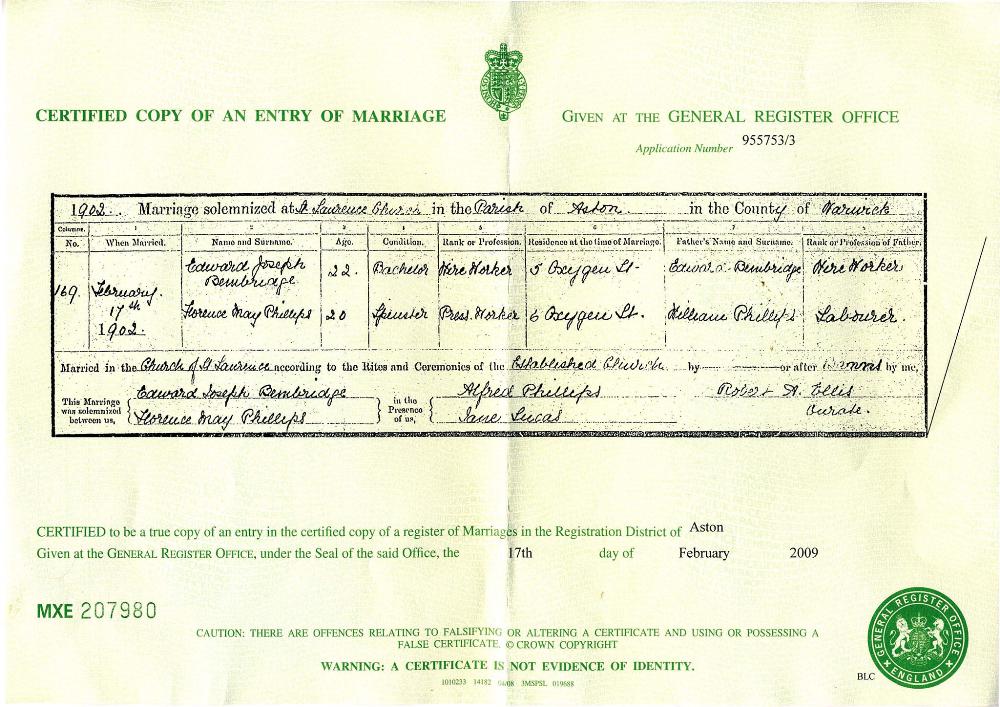 CERTIFIED COPY OF AN ENTRY OF MARRIAGE
GIVEN AT THE GENERAL REGISTER OFFICE
Application Number 955753/3
1902.. Marriage solemnized at St Laurence Church in the Parish of Aston in the County of Warwick
Columns. 1 2 3 4 5 6 7 8
No. When Married. Name and Surname. Age. Condition. Rank or Profession. Residence at the time of Marriage. Father's Name and Surname. Rank or Profession of Father.
169. February 17th 1902.
Edward Joseph Bembridge 22. Bachelor Wire Worker 5 Oxygen St. Edward Bembridge Wire Worker
Florence May Phillips 20 Spinster Press Worker 6 Oxygen St. William Phillips Labourer.
Married in the Church of St Laurence according to the Rites and Ceremonies of the Established Church by or after Banns by me,
This Marriage was solemnized between us,
Edward Joseph Bembridge
Florence May Phillips
in the Presence of us,
Alfred Phillips
Jane Lucas
Robert A. Ellis
Curate.
CERTIFIED to be a true copy of an entry in the certified copy of a register of Marriages in the Registration District of Aston
Given at the GENERAL REGISTER OFFICE, under the Seal of the said Office, the 17th day of February 2009
MXE 207980
CAUTION: THERE ARE OFFENCES RELATING TO FALSIFYING OR ALTERING A CERTIFICATE AND USING OR POSSESSING A
FALSE CERTIFICATE. © CROWN COPYRIGHT
WARNING: A CERTIFICATE IS NOT EVIDENCE OF IDENTITY.
1010233 14182 3MSPSL 019688
BLC
GENERAL REGISTER OFFICE
ENGLAND